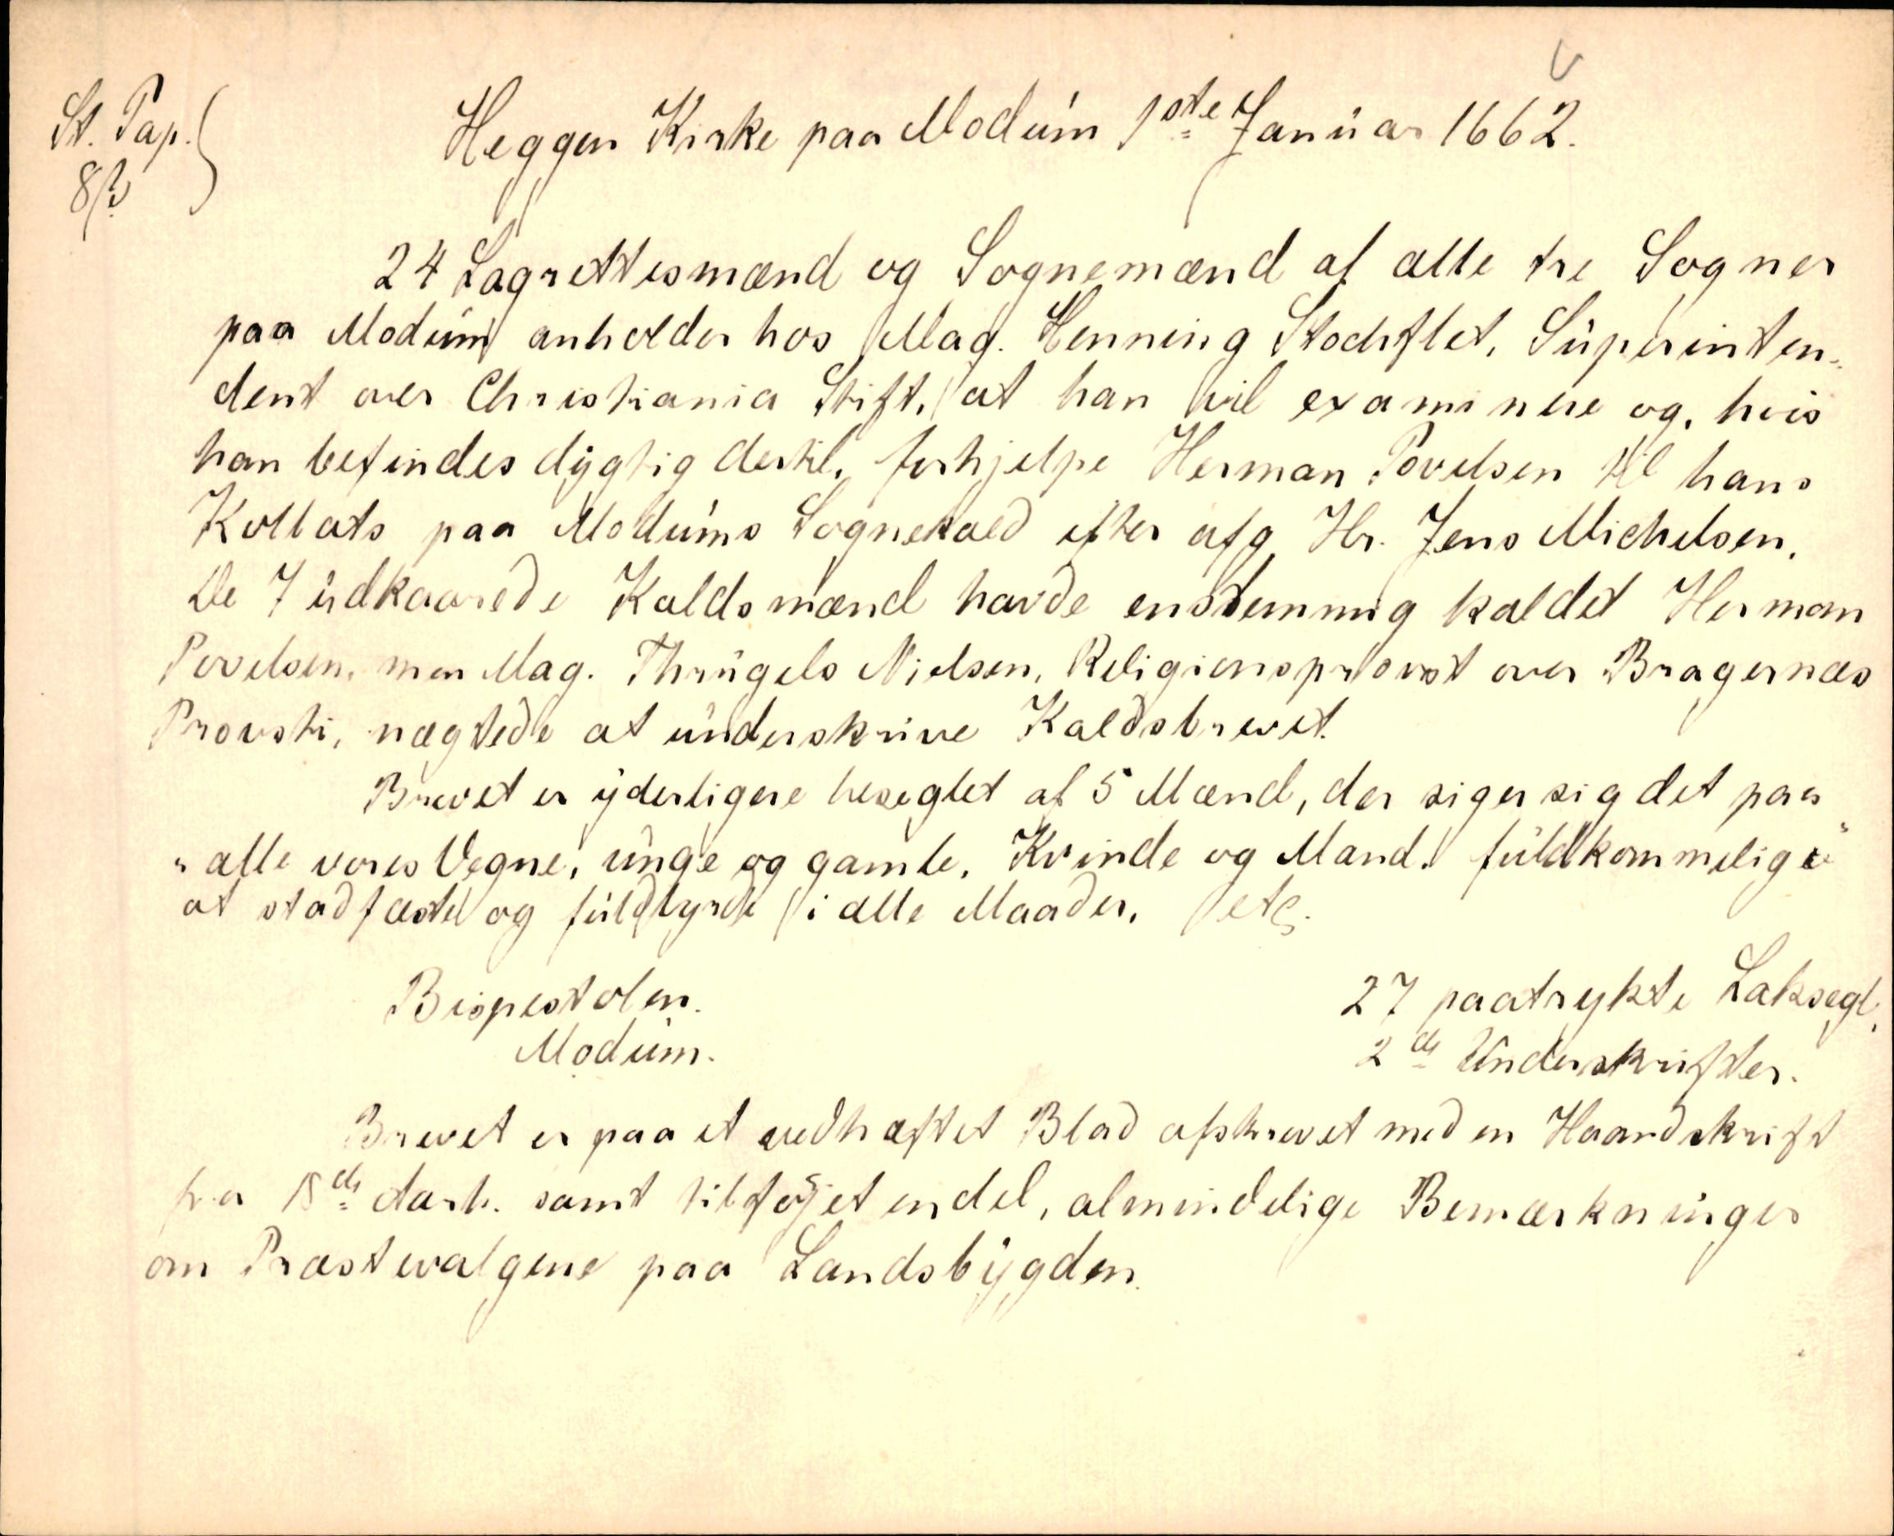 St. Pap.
8/3
Heggen Kirke paa Modum 1ste Januar 1662.
24 Lagrettesmænd og Sognemænd af alle tre Sogner
paa Modum anholder hos Mag. Henning Stochflet, Superinten-
dent over Christiania Stift, at han vil examinere og, hvis
han befindes dygtig dertil, forhjelpe Herman Povelsen til hans
Kollats paa Modums Sognekald efter afg. Hr. Jens Michelsen.
De 7 udkaarede Kaldsmænd havde enstemmig kaldet Herman
Povelsen, men Mag. Thrugels Nielsen, Religionsprovst over Bragernæs
Provsti, nægtede at underskrive Kaldsbrevet.
Brevet er yderligere beseglet af 5 Mænd, der siger sig det paa
"alle vores Vegne, unge og gamle, Kvinde og Mand, fuldkommelige"
at stadfæste og fuldbyrde i alle Maader, etc.
Bispestolen.
Modum.
27 paatrykte Laksegl,
2de Underskrifter.
Brevet er paa et vedhæftet Blad afskrevet med en Haandskrift
fra 18de Aarh. samt tilføjet endel, almindelige Bemærkninger
om Præstevalgene paa Landsbygden.